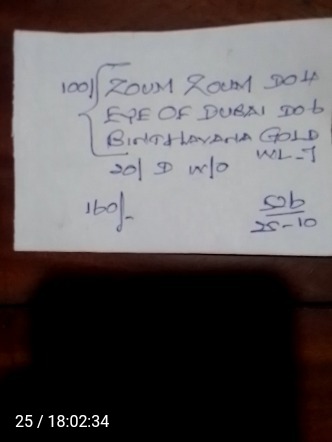 100/ ZOUM ZOUM DOH
EYE OF DUBAI DO6
BINTHAVANA GOLD
WL-7
20/ D W/O
160/-
SOB
25-10
25 / 18:02:34